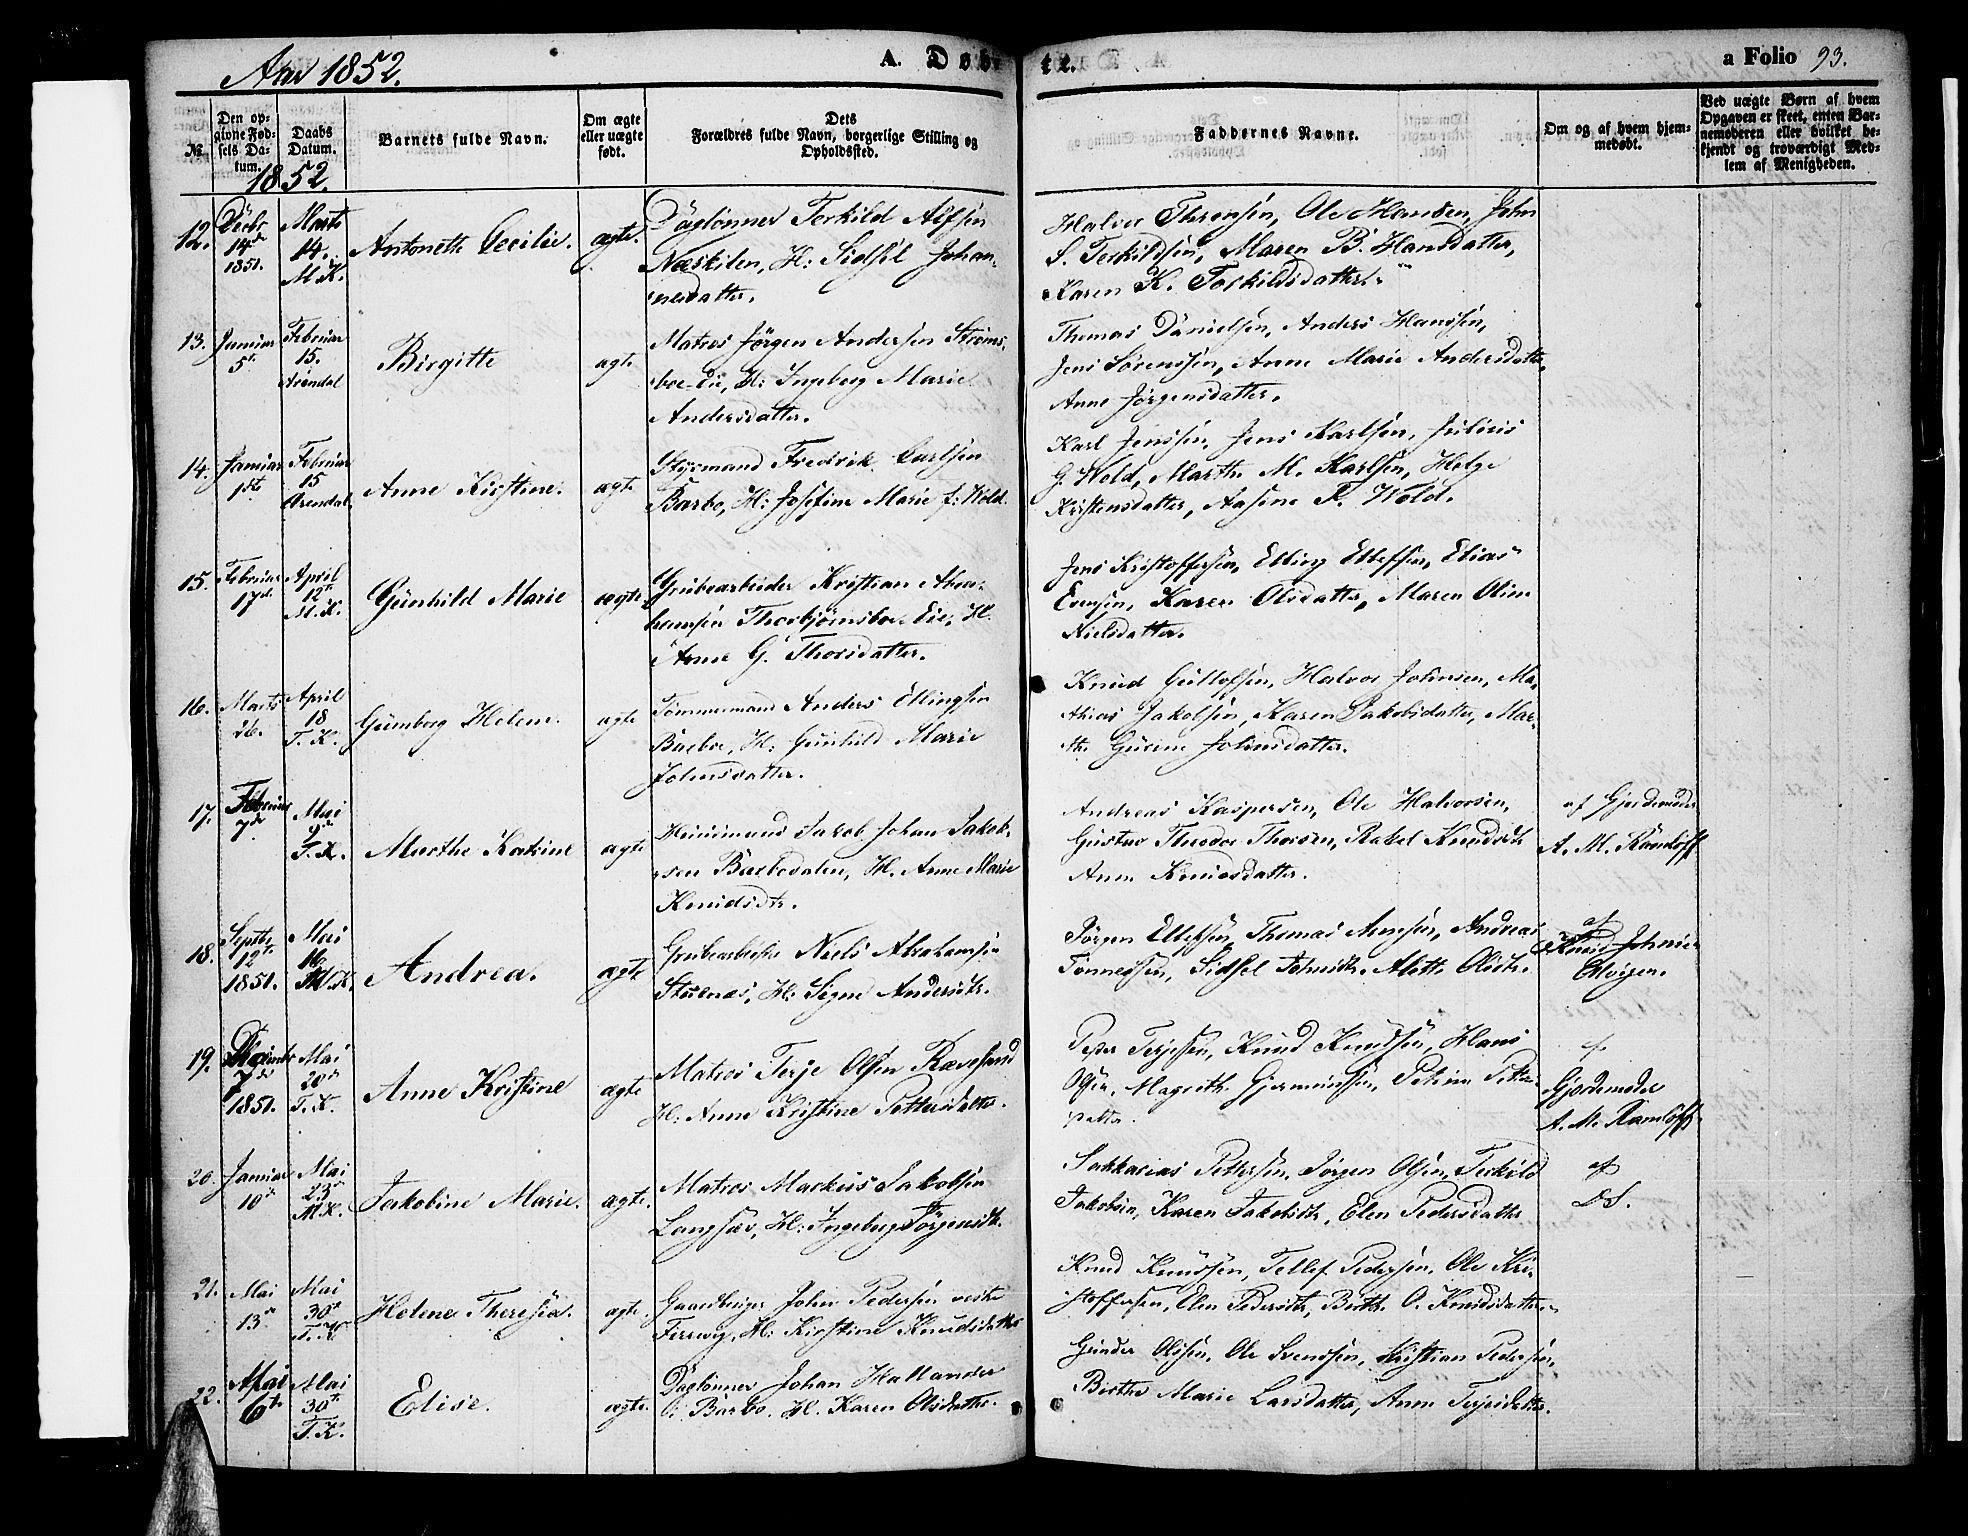 Aar 1852.
A. Døbte.
a Folio 93.
No.
Den opgivne Fødsels Datum.
Daabs Datum.
Barnets fulde Navn.
Om ægte eller uægte født.
Dets Forældres fulde Navn, borgerlige Stilling og Opholdssted.
Faddernes Navne.
Om og af hvem hjemmedøbt.
Ved uægte Børn af hvem Opgaven er skeet, enten Barnemoderen eller hvilket bekjendt og troværdigt Medlem af Menigheden.
1852.
12.
Decbr 14de 1851.
Marts 14. M.K.
Antoneth Cecilie.
ægte.
Daglønner Terkild Alfsen
Næskilen, H: Sidsel Johan-
nesdatter.
Halvor Thrensen, Ole Hansen, John
S. Terkildsen, Maren B. Hansdatter,
Karen K. Torkildsdatter.
13.
Januar 5te
Februar 15. Arendal
Birgitte
ægte
Matros Jørgen Andersen Strøms-
boe-Eie, H: Ingeborg Marie
Andersdatter.
Thomas Danielsen, Anders Hanssen,
Jens Sørenssen, Anne Marie Andersdatter,
Anne Jørgensdatter.
14.
Januar 1ste
Februar 15 Arendal.
Anne Kirstine.
ægte
Styrmand Fredrik Carlsen
Barbo, H: Josefine Marie f: Wold.
Karl Jenssen, Jens Karlsen, Julius
G. Wold, Marthe M. Karlsen, Helge
Kristensdatter, Aasine F. Wold.
15.
Februar 17de
April 12te M.K.
Gunhild Marie
ægte
Grubearbeider Kristian Abra-
hamsen Thorbjørnsboe Eie, H.
Anne G. Thorsdatter.
Jens Kristoffersen, Elling Ellefsen, Elias
Evensen, Karen Olsdatter, Maren Oline
Nielsdatter.
16.
Marts 26.
April 18 T.K.
Gunborg Helene.
ægte
Tømmermand Anders Ellingsen
Barboe, H: Gunhild Marie
Johnsdatter.
Knud Gullofsen, Halvor Johnsen, Ma-
thias Jakobsen, Karen Jakobsdatter, Mar-
the Gurine Johnsdatter.
17.
Februar 7de
Mai 9de T.K.
Marthe Katrine
ægte
Huusmand Jacob Johan Jakob-
sen Barbodalen, H. Anne Marie
Knudsdtr.
Andreas Kaspersen, Ole Halvorsen,
Gustav Theodor Thorsen, Rakel Knudsdtr
Anne Knudsdatter.
af Gjordemoder
A. M. Ramloff
18.
Septbr 12te 1851.
Mai 16 M.K.
Andrea.
ægte
Grubearbeider Niels Abrahamsen
Stuenæs, H: Signe Andersdtr.
Jørgen Ellefsen, Thomas Arnesen, Andreas
Tønnessen, Sidsel Johnsdtr. Aleth Olsdtr.
af
Knud Johnsen
Olvigen.
19.
7de 1851.
Mai 20de T.K.
Anne Kristine
ægte
Matros Terje Olsen Rævesand
H: Anne Kristine Pettersdatter.
Peder Terjesen, Knud Knudsen, Hans
Olsen, Magrethe Gjermunsen, Petrine Petter-
datter.
af
Gjordemoder
A. M. Ramloff
20.
Januar 10de
Mai 23de M.K.
Jakobine Marie.
ægte.
Matros Markus Jakobsen
Langsæv, H: Ingeborg Jørgensdtr.
Sakkarias Pettersen, Jørgen Olsen, Terkild
Jakobsen, Karen Jakobsdtr, Elen Pedersdatter
af
D.S.
21.
Mai 13de
Mai 30te T.K.
Helene Theresia.
ægte.
Gaardbruger John Pedersen vestre
Fierevig, H: Kirstine Knudsdatter
Knud Knudsen, Tellef Pedersen, Ole Kri-
stoffersen, Elen Pedersdtr, Berthe O. Knudsdatter.
22.
Mai 6te
Mai 30te T.K.
Elise.
ægte.
Daglønner Johan Hallander
i Barbo. H. Karen Olsdatter.
Gunder Olssen, Ole Svendsen, Kristian Pedersen,
Birthe Marie Larsdatter, Anne Terjesdatter.